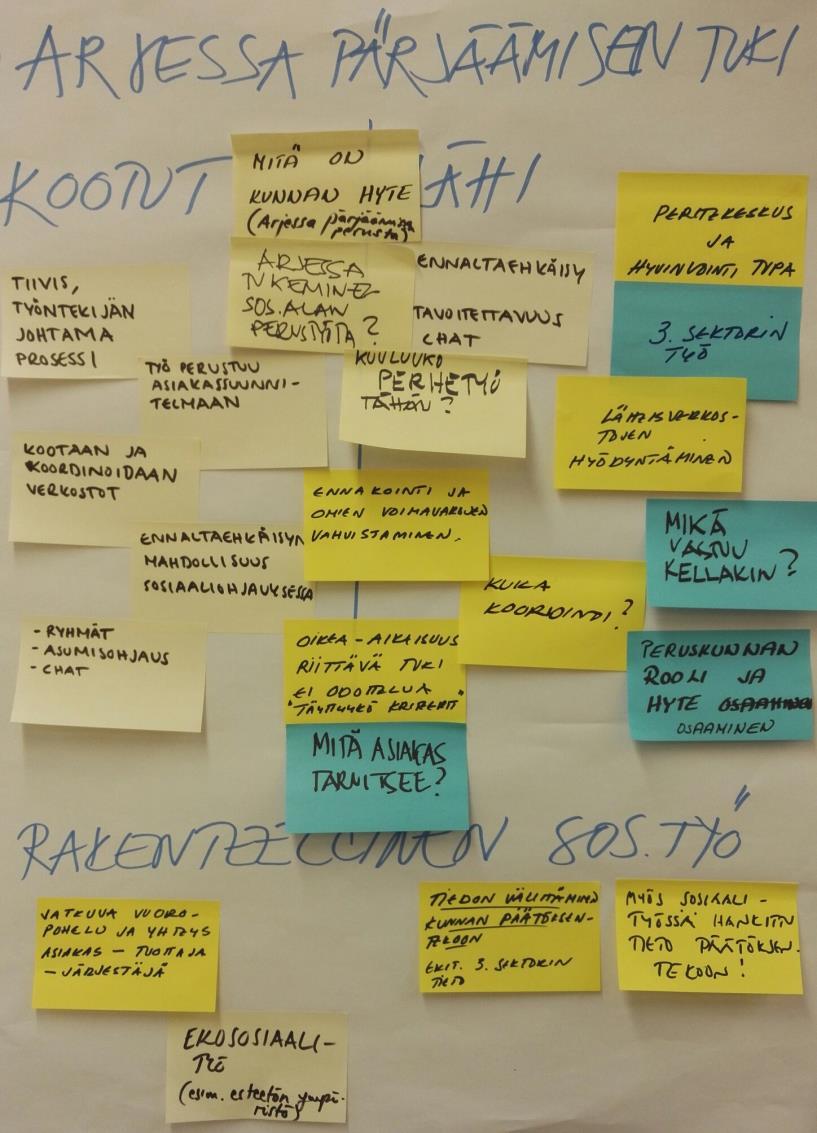 ARJESSA PÄRJÄÄMISEN TUKI
KOOTUT
LÄHI
MITÄ ON
KUNNAN HYTE
(Arjessa pärjäämisen
perusta)
ARJESSA
TUKEMINEN
SOS.ALAN
PERUSTYÖTÄ?
ENNALTAEHKÄISY
TAVOITETTAVUUS
CHAT
TIIVIS,
TYÖNTEKIJÄN
JOHTAMA
PROSESSI
TYÖ PERUSTUU
ASIAKASSUUNNI-
TELMAAN
KUULUUKO
PERHETYÖ
TÄHÄN?
KOOTAAN JA
KOORDINOIDAAN
VERKOSTOT
ENNALTAEHKÄISYN
MAHDOLLISUUS
SOSIAALIOHJAUKSESSA
- RYHMÄT
- ASUMISOHJAUS
- CHAT
ENNAKOINTI JA
OMIEN VOIMAVAROJEN
VAHVISTAMINEN.
OIKEA-AIKAISUUS
RIITTÄVÄ TUKI
EI ODOTTELUA
"TÄYTTYYKÖ KRITEERIT"
MITÄ ASIAKAS
TARVITSEE?
PERHEKESKUS
JA
HYVINVOINTI TUPA
3. SEKTORIN
TYÖ
LÄHEISVERKOS-
TOJEN
HYÖDYNTÄMINEN
MIKÄ
VASTUU
KELLÄKIN?
KUKA
KOORDINOI?
PERUSKUNNAN
ROOLI JA
HYTE OSAAMINEN
OSAAMINEN
RAKENTEELLINEN SOS.TYÖ
JATKUVA VUORO-
POHELU JA YHTEYS
ASIAKAS – TUOTTAJA
– JÄRJESTÄJÄ
EKOSOSIAALI-
(esim. esteetön ympä-
ristö)
TIEDON VÄLITTÄMINEN
KUNNAN PÄÄTÖKSEN-
TEKOON
ERIT. 3. SEKTORIN
TIETO
MYÖS SOSIAALI-
TYÖSSÄ HANKITTU
TIETO PÄÄTÖKSEN-
TEKOON!